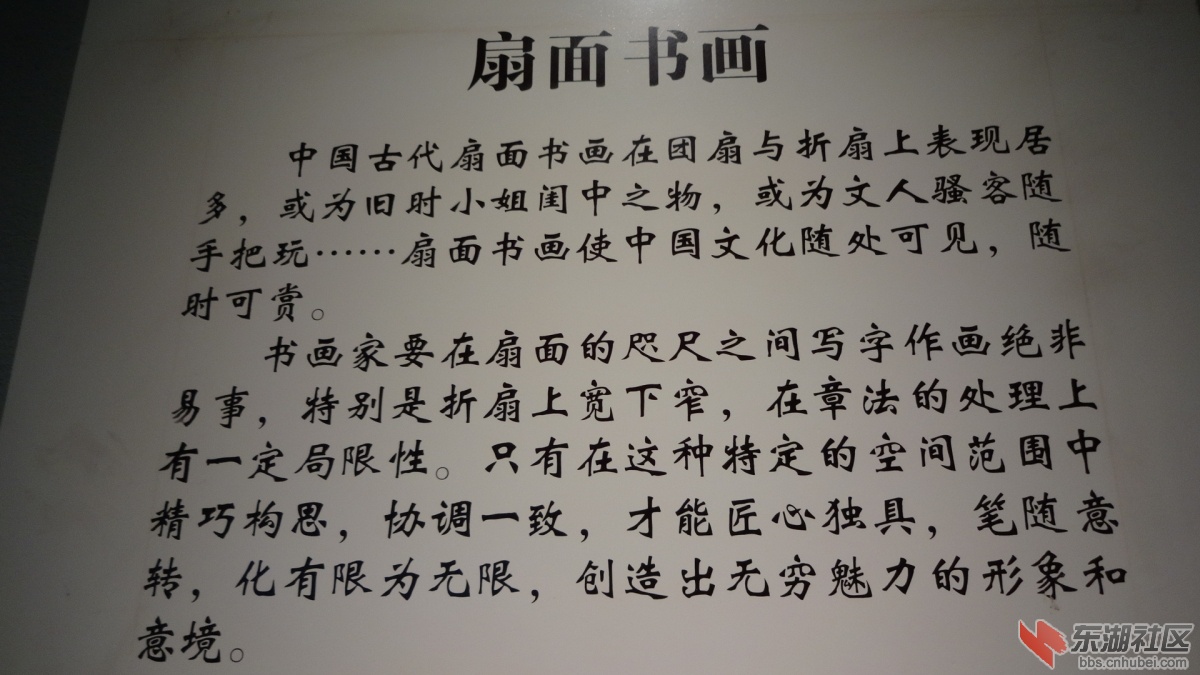 扇面书画
中国古代扇面书画在团扇与折扇上表现居
多，或为旧时小姐闺中之物，或为文人骚客随
手把玩……扇面书画使中国文化随处可见，随
时可赏。
书画家要在扇面的咫尺之间写字作画绝非
易事，特别是折扇上宽下窄，在章法的处理上
有一定局限性。只有在这种特定的空间范围中
精巧构思，协调一致，才能匠心独具，笔随意
转，化有限为无限，创造出无穷魅力的形象和
意境。
东湖社区
bbs.cnhubei.com